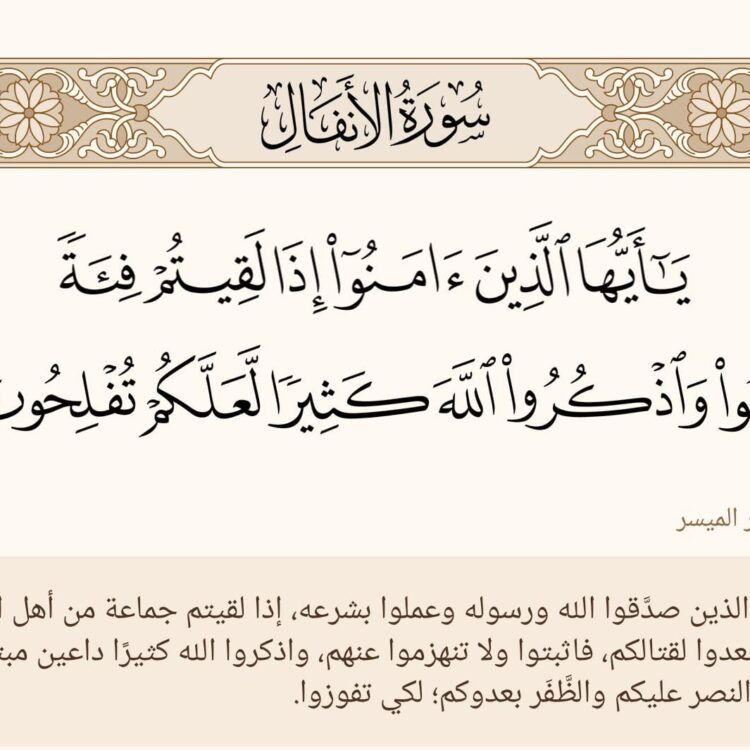 سُورَةُ الأَنفَالِ
يَـٰٓأَيُّهَا ٱلَّذِينَ ءَامَنُوٓا۟ إِذَا لَقِيتُمْ فِئَةً
وَٱذْكُرُوا۟ ٱللَّهَ كَثِيرًا لَّعَلَّكُمْ تُفْلِحُونَ
الميسر
الذين صدَّقوا الله ورسوله وعملوا بشرعه، إذا لقيتم جماعة من أهل
لقتالكم، فاثبتوا ولا تنهزموا عنهم، واذكروا الله كثيرًا داعين
النصر عليكم والظَّفَر بعدوكم؛ لكي تفوزوا.